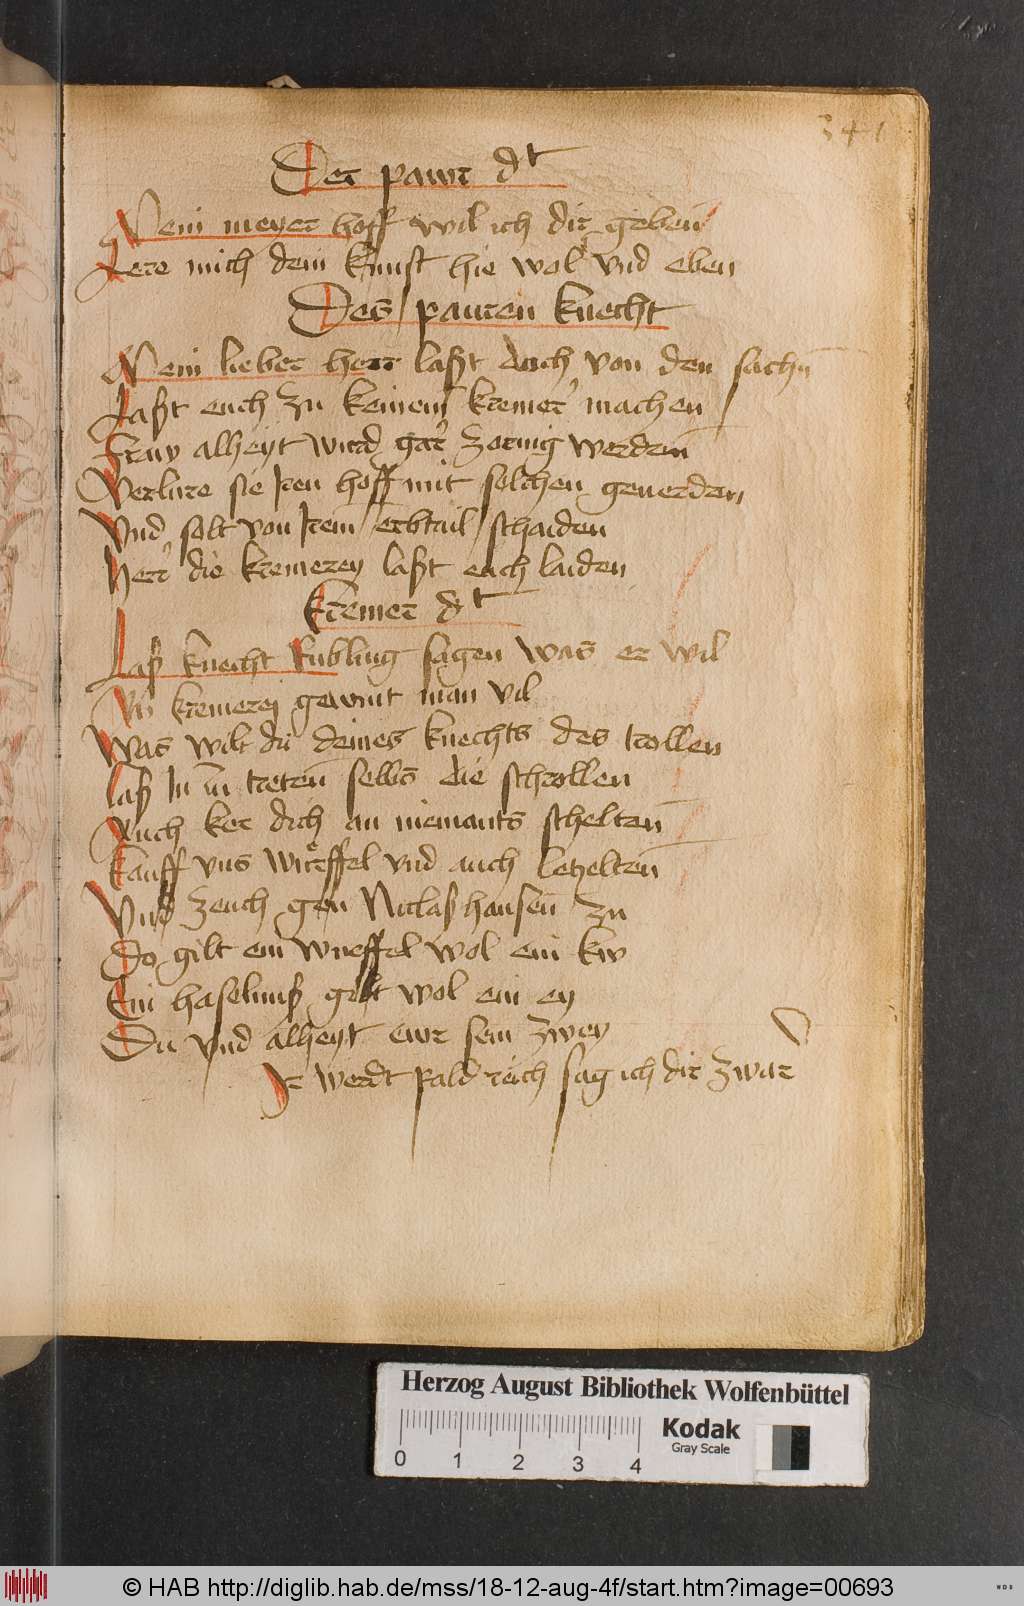 341
Der pawr dt
Mein meyer hoff wil ich dir geben
Lere mich dein kunst hie wol vnd eben
Des pauren knecht
Mein lieber herr laßt euch von den sachn
Laßt euch zu keinem kremer machen
Fraw alheyt wird gar zornig werden
Verlure sie Iren hoff mit solchen geuerden
Vnd solt von Irem erbtail schaiden
Herr die kremerey laßt euch laiden
kremer dt
Laß knecht Rubling sagen was er wil
An kremerej gewint man vil
Was wilt du deines knechts des trollen
laß In in treten selbs die schrollen
Auch ker dich an niemants schelten
kauff vns wurffel vnd auch letzelten
Vnd zeuch gen Niclaßhausen zu
Do gilt ein wurffel wol ein kw
Ein haselnuß gilt wol ein ey
Du vnd alheyt ewr sein zwey
Ir werdt pald reich sag ich dir zwar
Herzog August Bibliothek Wolfenbüttel
0 1 2 3 4
Kodak
Gray Scale
© HAB http://diglib.hab.de/mss/18-12-aug-4f/start.htm?image=00693